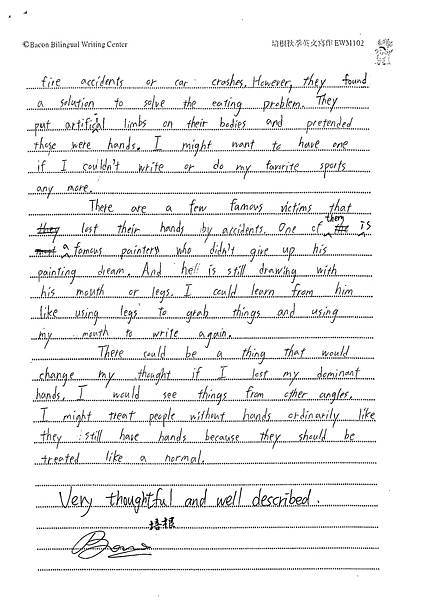 ©Bacon Bilingual Writing Center 培根秋季英文寫作 EWM102
fire accidents or car crashes. However, they found
a solution to solve the eating problem. They
put artificial limbs on their bodies and pretended
those were hands. I might want to have one
if I couldn't write or do my favorite sports
any more.
There are a few famous victims that
lost their hands by accidents. One of them is
a famous painter who didn't give up his
painting dream. And he is still drawing with
his mouth or legs. I could learn from him
like using legs to grab things and using
my mouth to write again.
There could be a thing that would
change my thought if I lost my dominant
hands. I would see things from other angles.
I might treat people without hands ordinarily like
they still have hands because they should be
treated like a normal.
Very thoughtful and well described.
培根